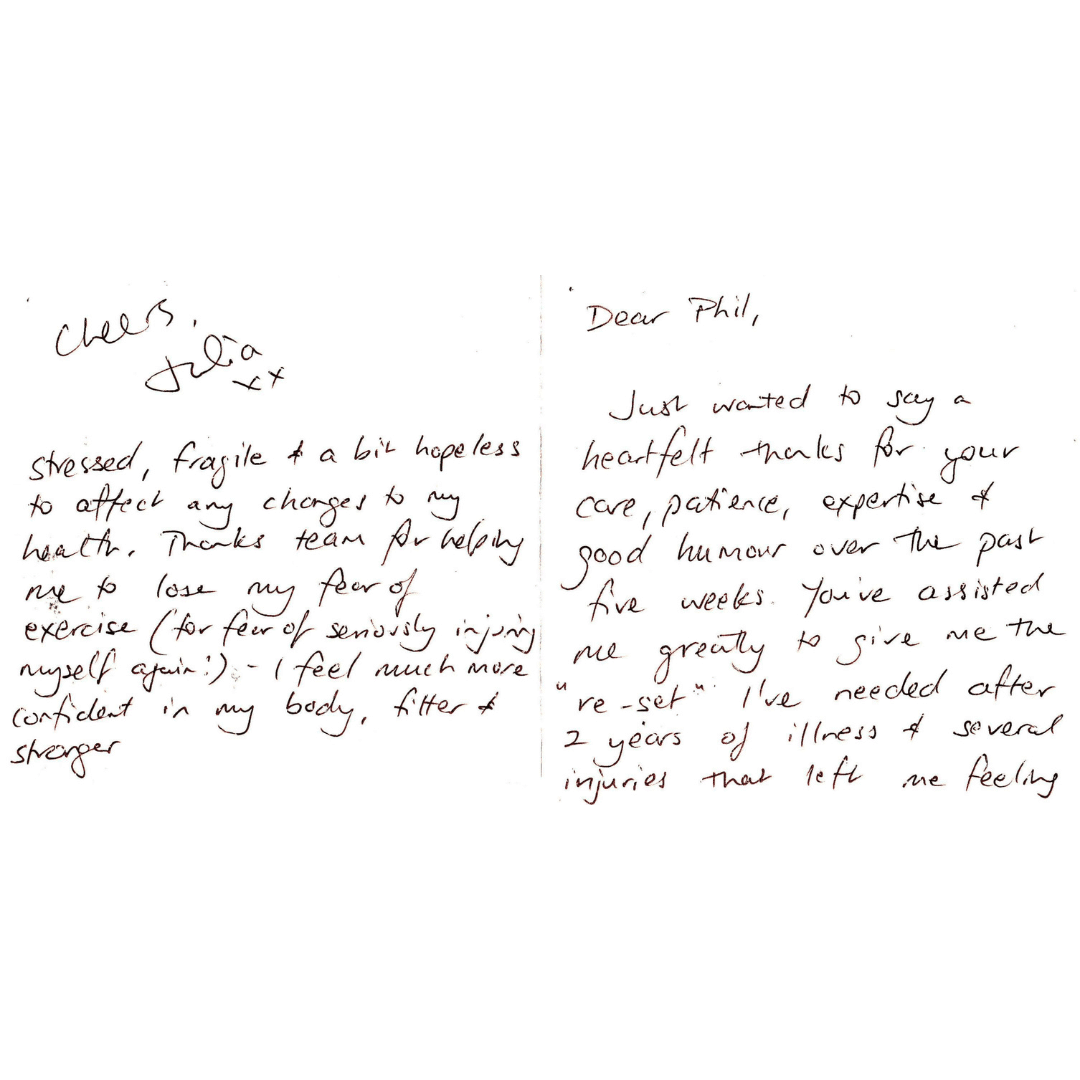 Dear Phil,
Just wanted to say a
heartfelt thanks for your
care, patience, expertise &
good humour over the past
five weeks. You've assisted
me greatly to give me the
"re-set" I've needed after
2 years of illness & several
injuries that left me feeling
stressed, fragile & a bit hopeless
to affect any changes to my
health. Thanks team for helping
me to lose my fear of
exercise (for fear of seriously injuring
myself again!) - I feel much more
confident in my body, fitter &
stronger
Cheers,
Julia
xx